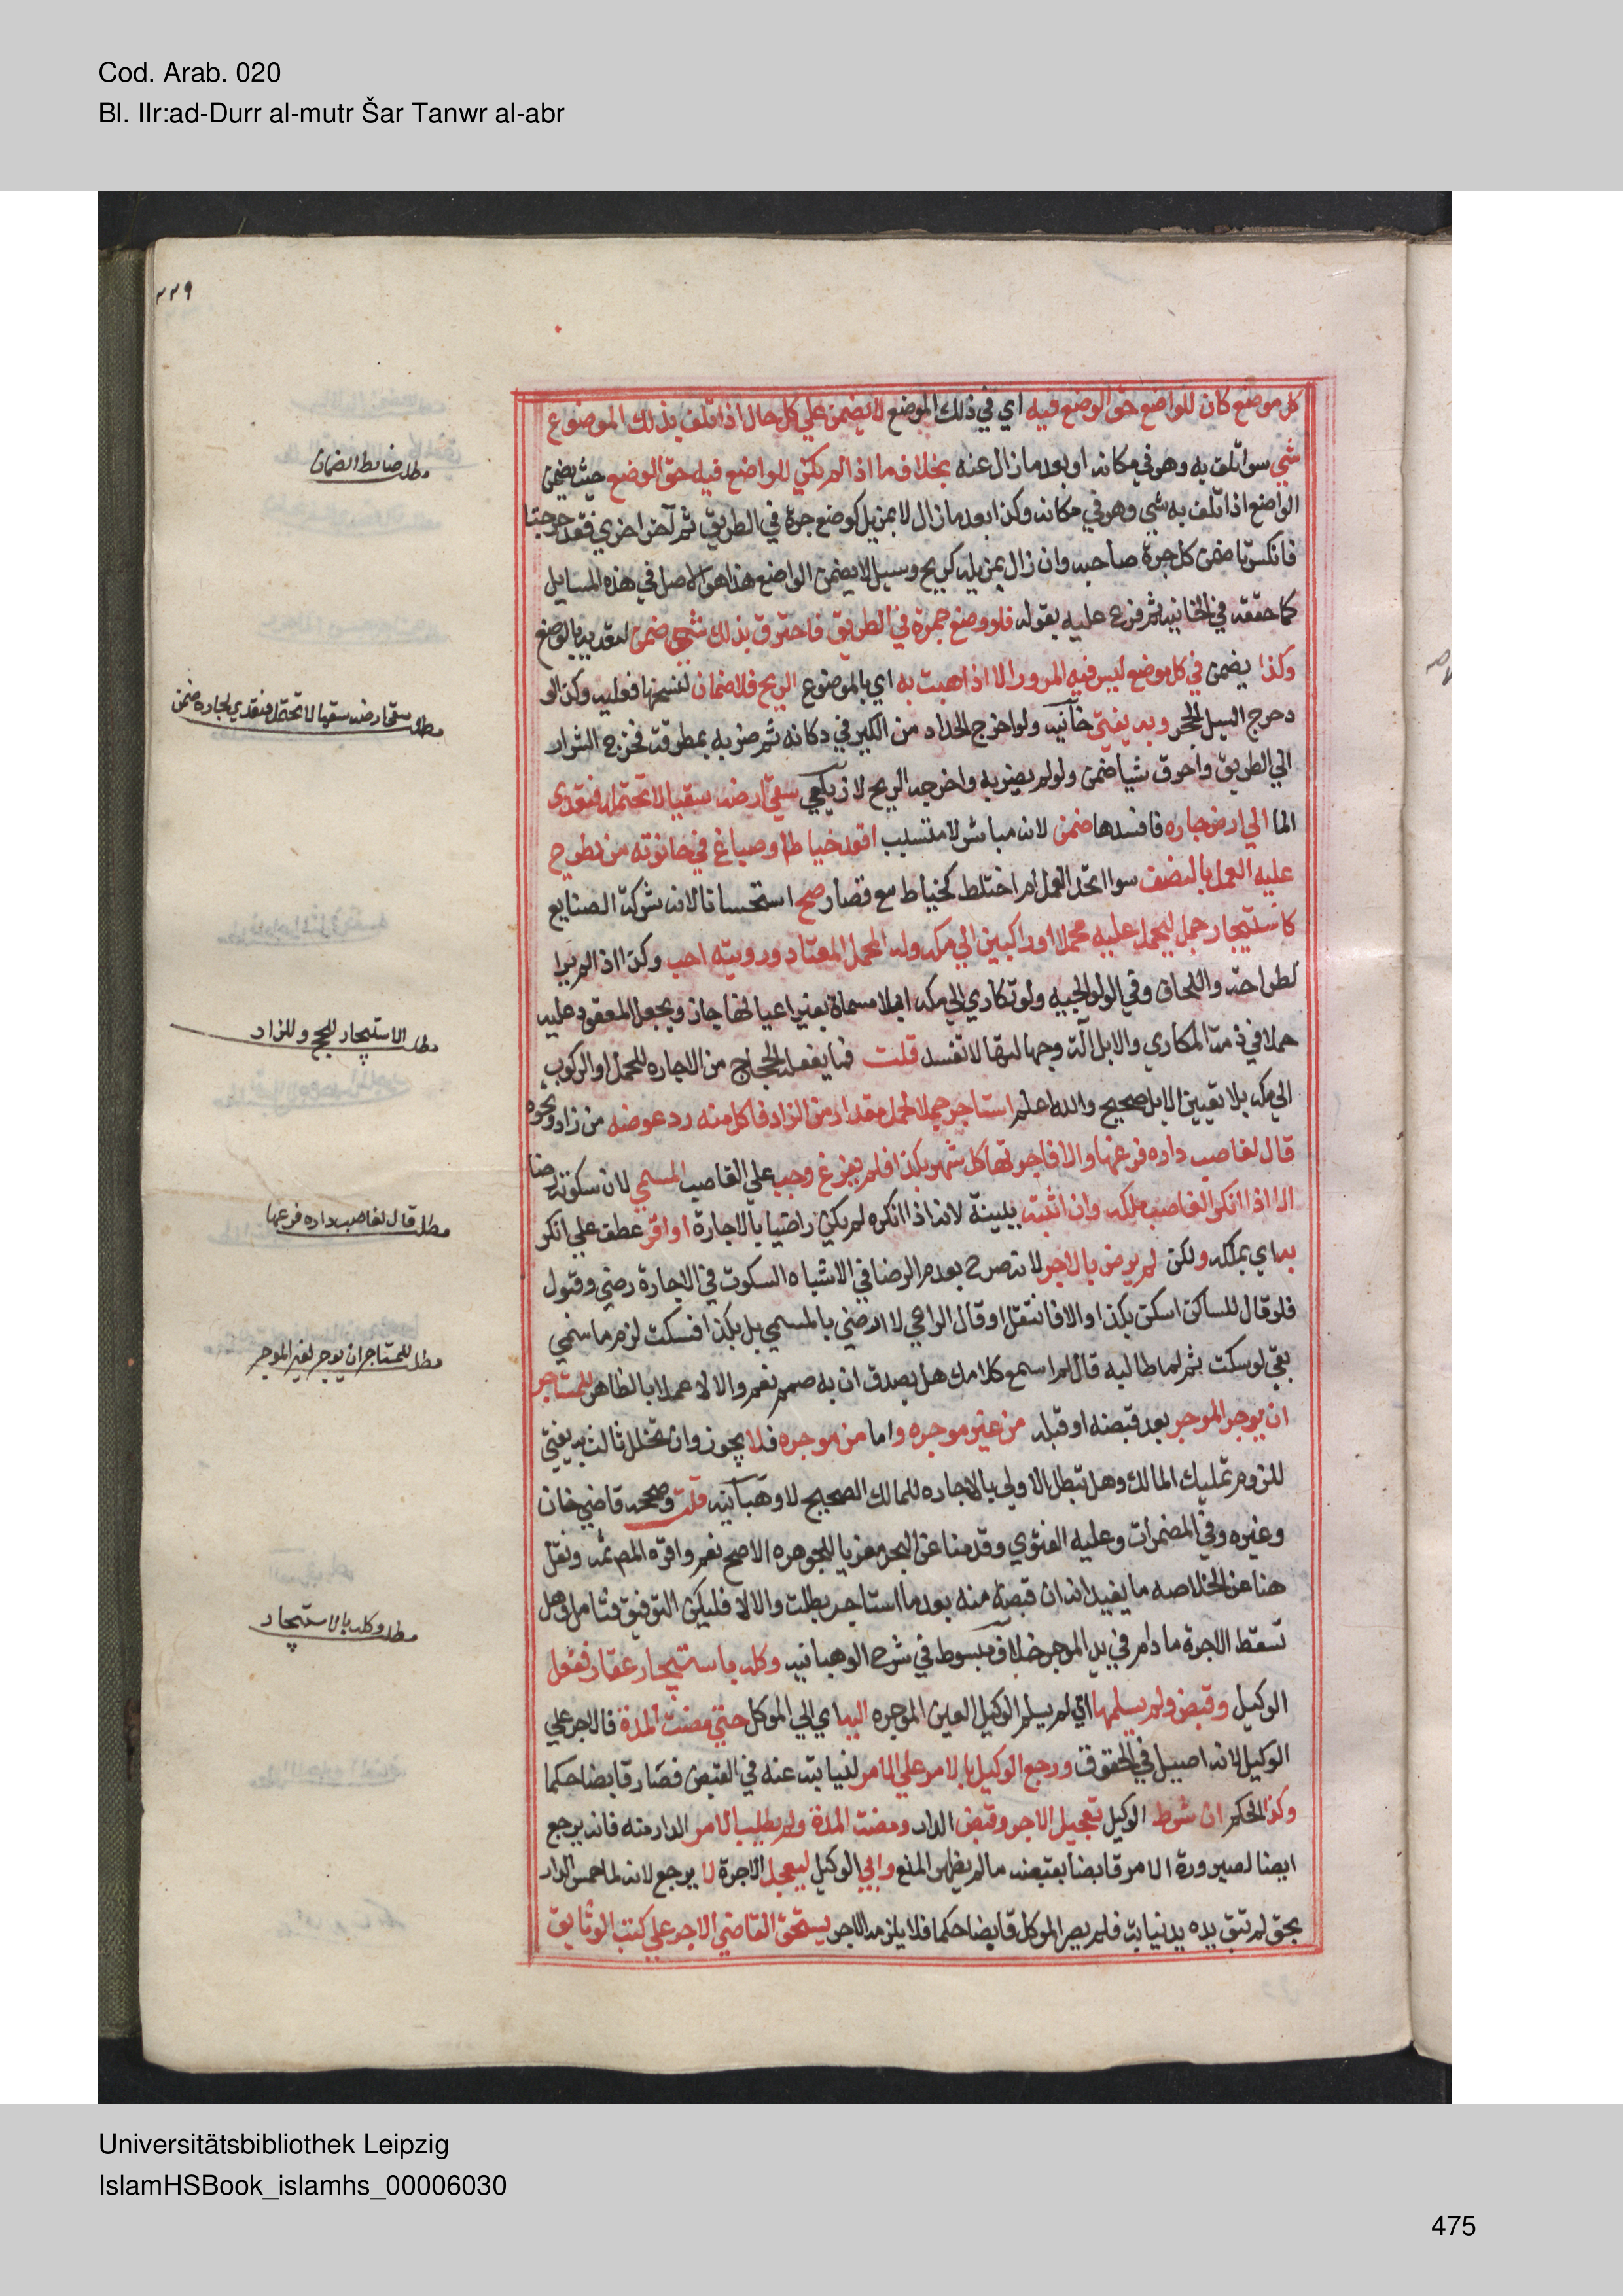 Cod. Arab. 020
Bl. IIr:ad-Durr al-mutr Šar Tanwr al-abr
٢٢٩
كل موضع كان للواضع حق الوضع فيه اي في ذلك الموضع لا يضمن علي كل حال اذا تلف بذلك الموضوع
شي سوا تلف به وهو في مكانه او بعد ما زال عنه بخلاف ما اذا لم يكن للواضع فيه حق الوضع حيث يضمن
مطلب ضابط الضمان
الواضع اذا تلف به شي وهو في مكانه وكذا بعد ما زال لا بمزيل كوضع جرة في الطريق ثم آخر اخري فتدحرجتا
فانكسرتا ضمن كل جرة صاحبه وان زال بمزيل كريح وسيل لا يضمن الواضع هذا هو الاصل في هذه المسايل
كما حققه في الخانيه ثم فرع عليه بقوله فلو وضع جمرة في الطريق فاحترق بذلك شي ضمن لتعديه بالوضع
وكذا يضمن في كل موضع ليس فيه المرور الا اذا هبت به اي بالموضوع الريح فلا ضمان لنسخها فعليه وكذا لو
مطلب سقي ارضه سقيا لا تحتمله فتعدي لجاره ضمن
دحرج السيل الحجر وبه يفتي خانيه ولو اخرج الحداد من الكير في دكانه ثم ضربه بمطرقته فخرج الشرار
الي الطريق واحرق شيا ضمن ولو لم يضربه واخرجه الريح لا زيلعي سقي ارضه سقيا لا تحتمله فتعدي
الما الي ارض جاره فافسدها ضمن لانه مباشر لا متسبب اقعد خياط او صباغ في حانوته من يطرح
عليه العمل بالنصف سوا اتحد العمل ام اختلط كخياط مع قصار صح استحسانا لانه شركة الصنايع
كاستيجار جمل ليحمل عليه محملا او راكبين الي مكه وله المحمل المعتاد ورويته احب وكذا اذا لم يرا
لطراحة واللحاف وفي الولوالجيه ولو تكاري الي مكه ابلا مسماة بغير اعيانها جاز ويجعل المعقود عليه
مطلب الاستيجار للحج وللزاد
حملا في ذمة المكاري والابل آلة وجهالتها لا تفسد قلت فما يفعله الحجاج من الاجاره للحمل او الركوب
الي مكه بلا تعيين الابل صحيح والله اعلم استاجر جملا لحمل مقدار من الزاد فاكل منه رد عوضه من زاد ونحوه
قال لغاصب داره فرغها والا فاجرتها كل شهر بكذا فلم يفرغ وجب علي الغاصب المسمي لان سكوته رضا
الا اذا انكر الغاصب ملكه وان اثبته ببينة لانه اذا انكره لم يكن راضيا بالاجارة او اقر عطف علي انكر
مطلب قال لغاصب داره فرغها
به اي بملكه ولكن لم يرض بالاجر لانه صرح بعدم الرضا في الاشباه السكوت في الاجارة رضي وقبول
فلو قال للساكن اسكن بكذا والا فانتقل او قال الراعي لا ارضي بالمسمي بل بكذا فسكت لزم ما سمي
بقي لو سكت ثم لما طالبه قال لم اسمع كلامك هل يصدق ان به صمم نعم والا لا عملا بالظاهر للمستاجر
مطلب للمستاجر ان يوجر لغير الموجر
ان يوجر الموجر بعد قبضه او قبله من غير موجره واما من موجره فلا يجوز وان تخلل ثالث به يفتي
للزوم تمليك المالك وهل تبطل الاولي بالاجاره للمالك الصحيح لا وهبانيه قلت وصححه قاضي خان
وغيره وفي المضمرات وعليه الفتوي وقدمنا عن البحر معزيا للجوهره الاصح نعم واقره المص ثمه ونقل
هنا عن الخلاصه ما يفيد انه ان قبضه منه بعد ما استاجر بطلت والا لا فليكن التوفيق فتامل وهل
تسقط الاجرة ما دام في يد الموجر خلاف مبسوط في شرح الوهبانيه وكله باستيجار عقار ففعل
مطلب وكله بالاستيجار
الوكيل وقبض ولم يسلمها اي لم يسلم الوكيل العين الموجره اليه اي الي الموكل حتي مضت المدة فالاجر علي
الوكيل لانه اصيل في الحقوق ورجع الوكيل بالامر علي الامر لنيابته عنه في القبض فصار قابضا حكما
وكذا الحكم ان شرط الوكيل تعجيل الاجر وقبض الدار ومضت المدة ولم يطلب الامر الدار منه فانه يرجع
ايضا لصيرورة الامر قابضا بقبضه ما لم يظهر المنع وابي الوكيل ليعجل الاجرة لا يرجع لانه لما حبس الدار
بحق لم تبق يده يد نيابة فلم يصر الموكل قابضا حكما فلا يلزمه الاجر يستحق القاضي الاجر علي كتب الوثايق
Universitätsbibliothek Leipzig
IslamHSBook_islamhs_00006030
475